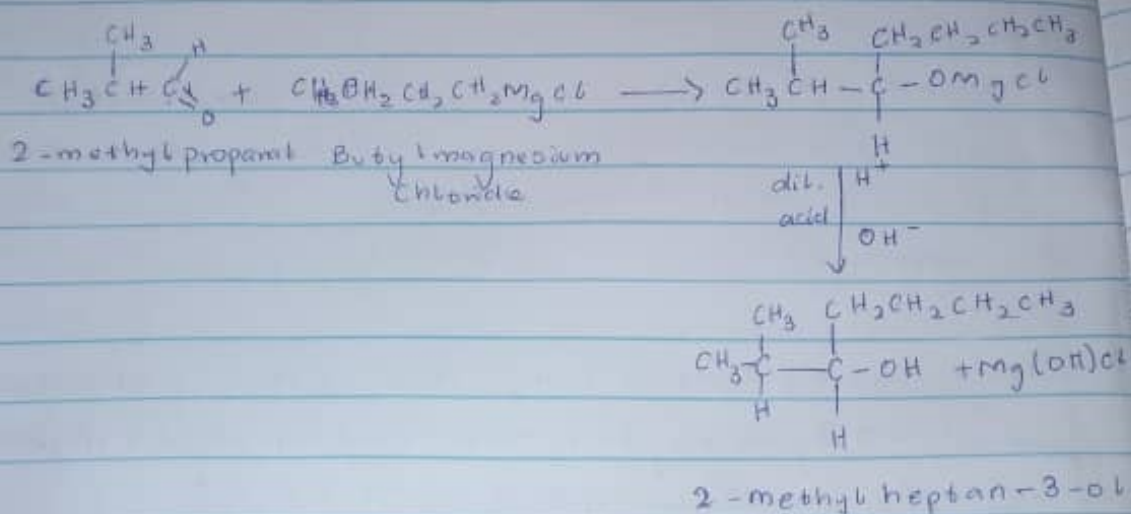 CH3 H CH3 CH2CH2CH2CH3
CH3CH C + CH2CH2CH2MgCl → CH3CH-C-OMgCl
O H
2-methylpropanal Butylmagnesium
Chloride
dil. H+
acid OH-
CH3 CH2CH2CH2CH3
CH3-C-C-OH +Mg(OH)Cl
H H
2-methylheptan-3-ol